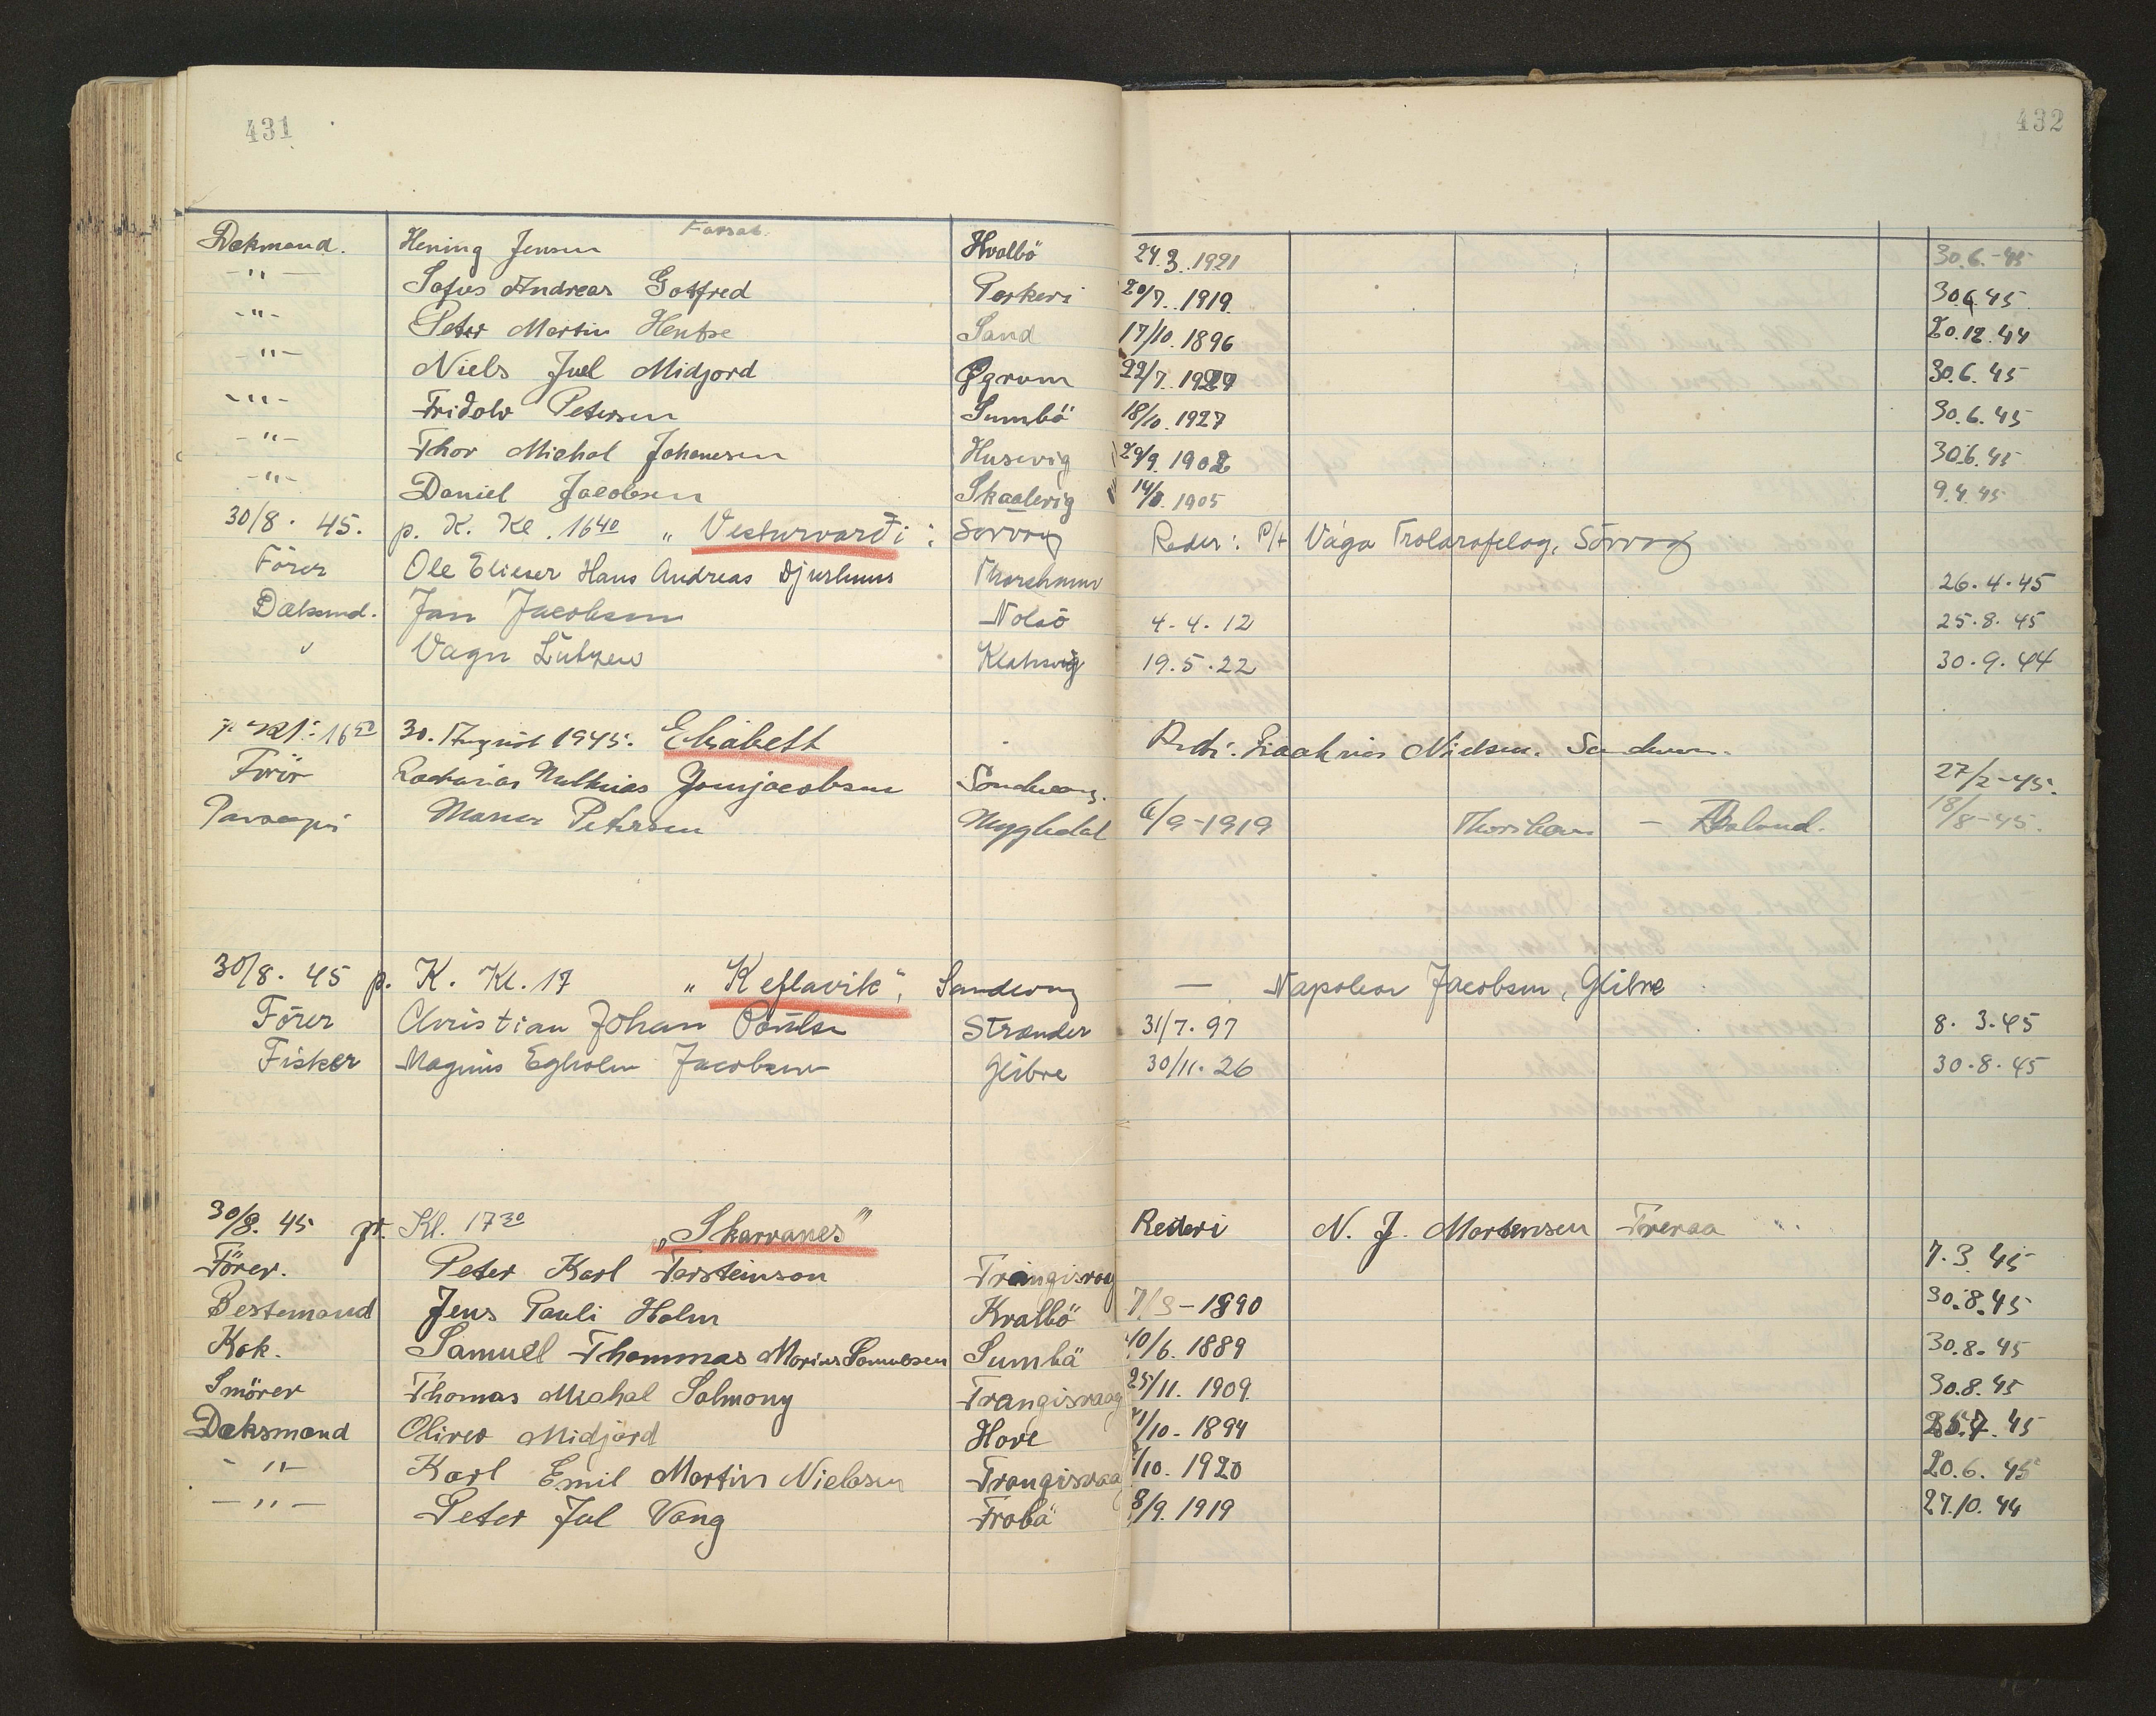 431
432
Farsat.
Dækmand. Hening Jensen Hvalbö 24.3.1921 30.6.-45
-"- Sofus Andreas Gotfred Porkeri 20/7. 1919 30.6.45
-"- Peter Martin Hentse Sand 17/10. 1896 20.12.44
-"- Niels Juel Midjord Øgrum 22/7. 30.6.45
-"- Fridolv Petersen Sumbö 18/10. 1927 30.6.45
-"- Thor Michal Johanesen Husevig 29/9. 1902 30.6.45
-"- Daniel Jacobsen Skaalevig 1905 9.4.45
30/8. 45. p. K. Kl. 16 40 „ Vesturvarði : Sorvag Reder: P/f Vága Trolarafelag, Sörvag
Förer Ole Elieser Hans Andreas Djurhuus Thorshavn 26.4.45
Dæksmd. Jan Jacobsen Nolsö 4.4.12 25.8.45
" Vagn Lützen Klaksvig 19.5.22 30.9.44
30. August 1945. Elisabett Nielsen. Sandvaag.
Förer Zacharias Mathias Joensjacobsen Sandvaag. 27/2-45.
Petersen Mygledal 6/9-1919 Thorshavn - 18/8-45.
30/8. 45 p. K. Kl. 17 „ Keflavik", Sandvag — Napoleon Jacobsen, Glibre
Förer Christian Johan Poulsen Strænder 31/7. 97 8. 3.45
Fisker Magnus Egholm Jacobsen Glibre 30/11. 26 30.8.45
30/8. 45 pr. Kl. 17 30 „Skarvanes" Rederi N. J. Mortensen Tveraa
Förer. Peter Karl Torsteinson Trangisvog 7.3.45
Bestemand Jens Pauli Holm Kvalbö 1890 30.8.45
Kok. Samuel Thommas Morius Samuesen Sumbä 10/6. 1889 30.8.45
Smörer Thomas Michal Solmony Trangisvaag 25/11. 1909 30.8.45
Dæksmand Oliver Midjord Hove 1/10. 1894 45
-"- Karl Emil Martin Nielsen Trangisvaag /10. 1920 20.6.45
-"- Peter Jul Vang Frobä 8/9. 1919 27.10.44